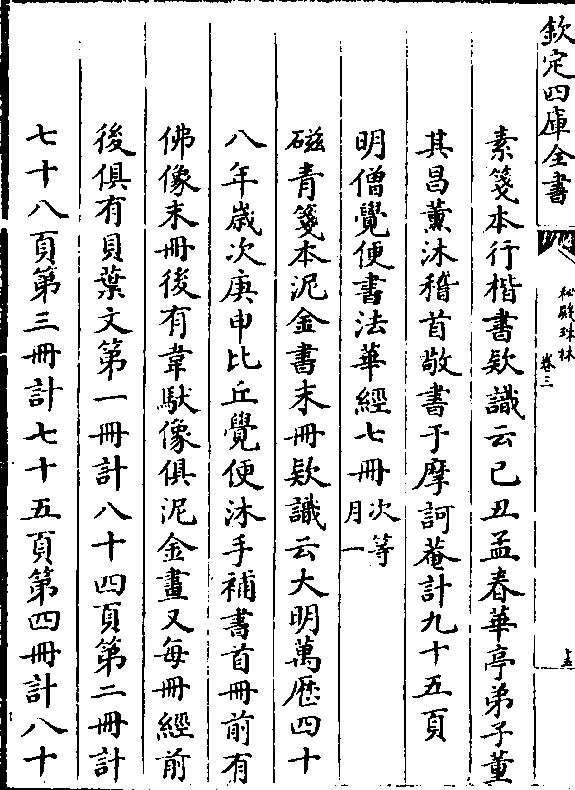 欽定四庫全書
秘殿珠林
卷三
素箋本行楷書欵識云已丑孟春華亭弟子董
其昌薰沐稽首敬書于摩訶菴計九十五頁
明僧覺便書法華經七冊次等
月一
磁青箋本泥金書末冊欵識云大明萬歷四十
八年嵗次庚申比丘覺便沐手補書首冊前有
佛像末冊後有韋馱像俱泥金畫又每冊經前
後俱有貝葉文第一冊計八十四頁第二冊計
七十八頁第三冊計七十五頁第四冊計八十